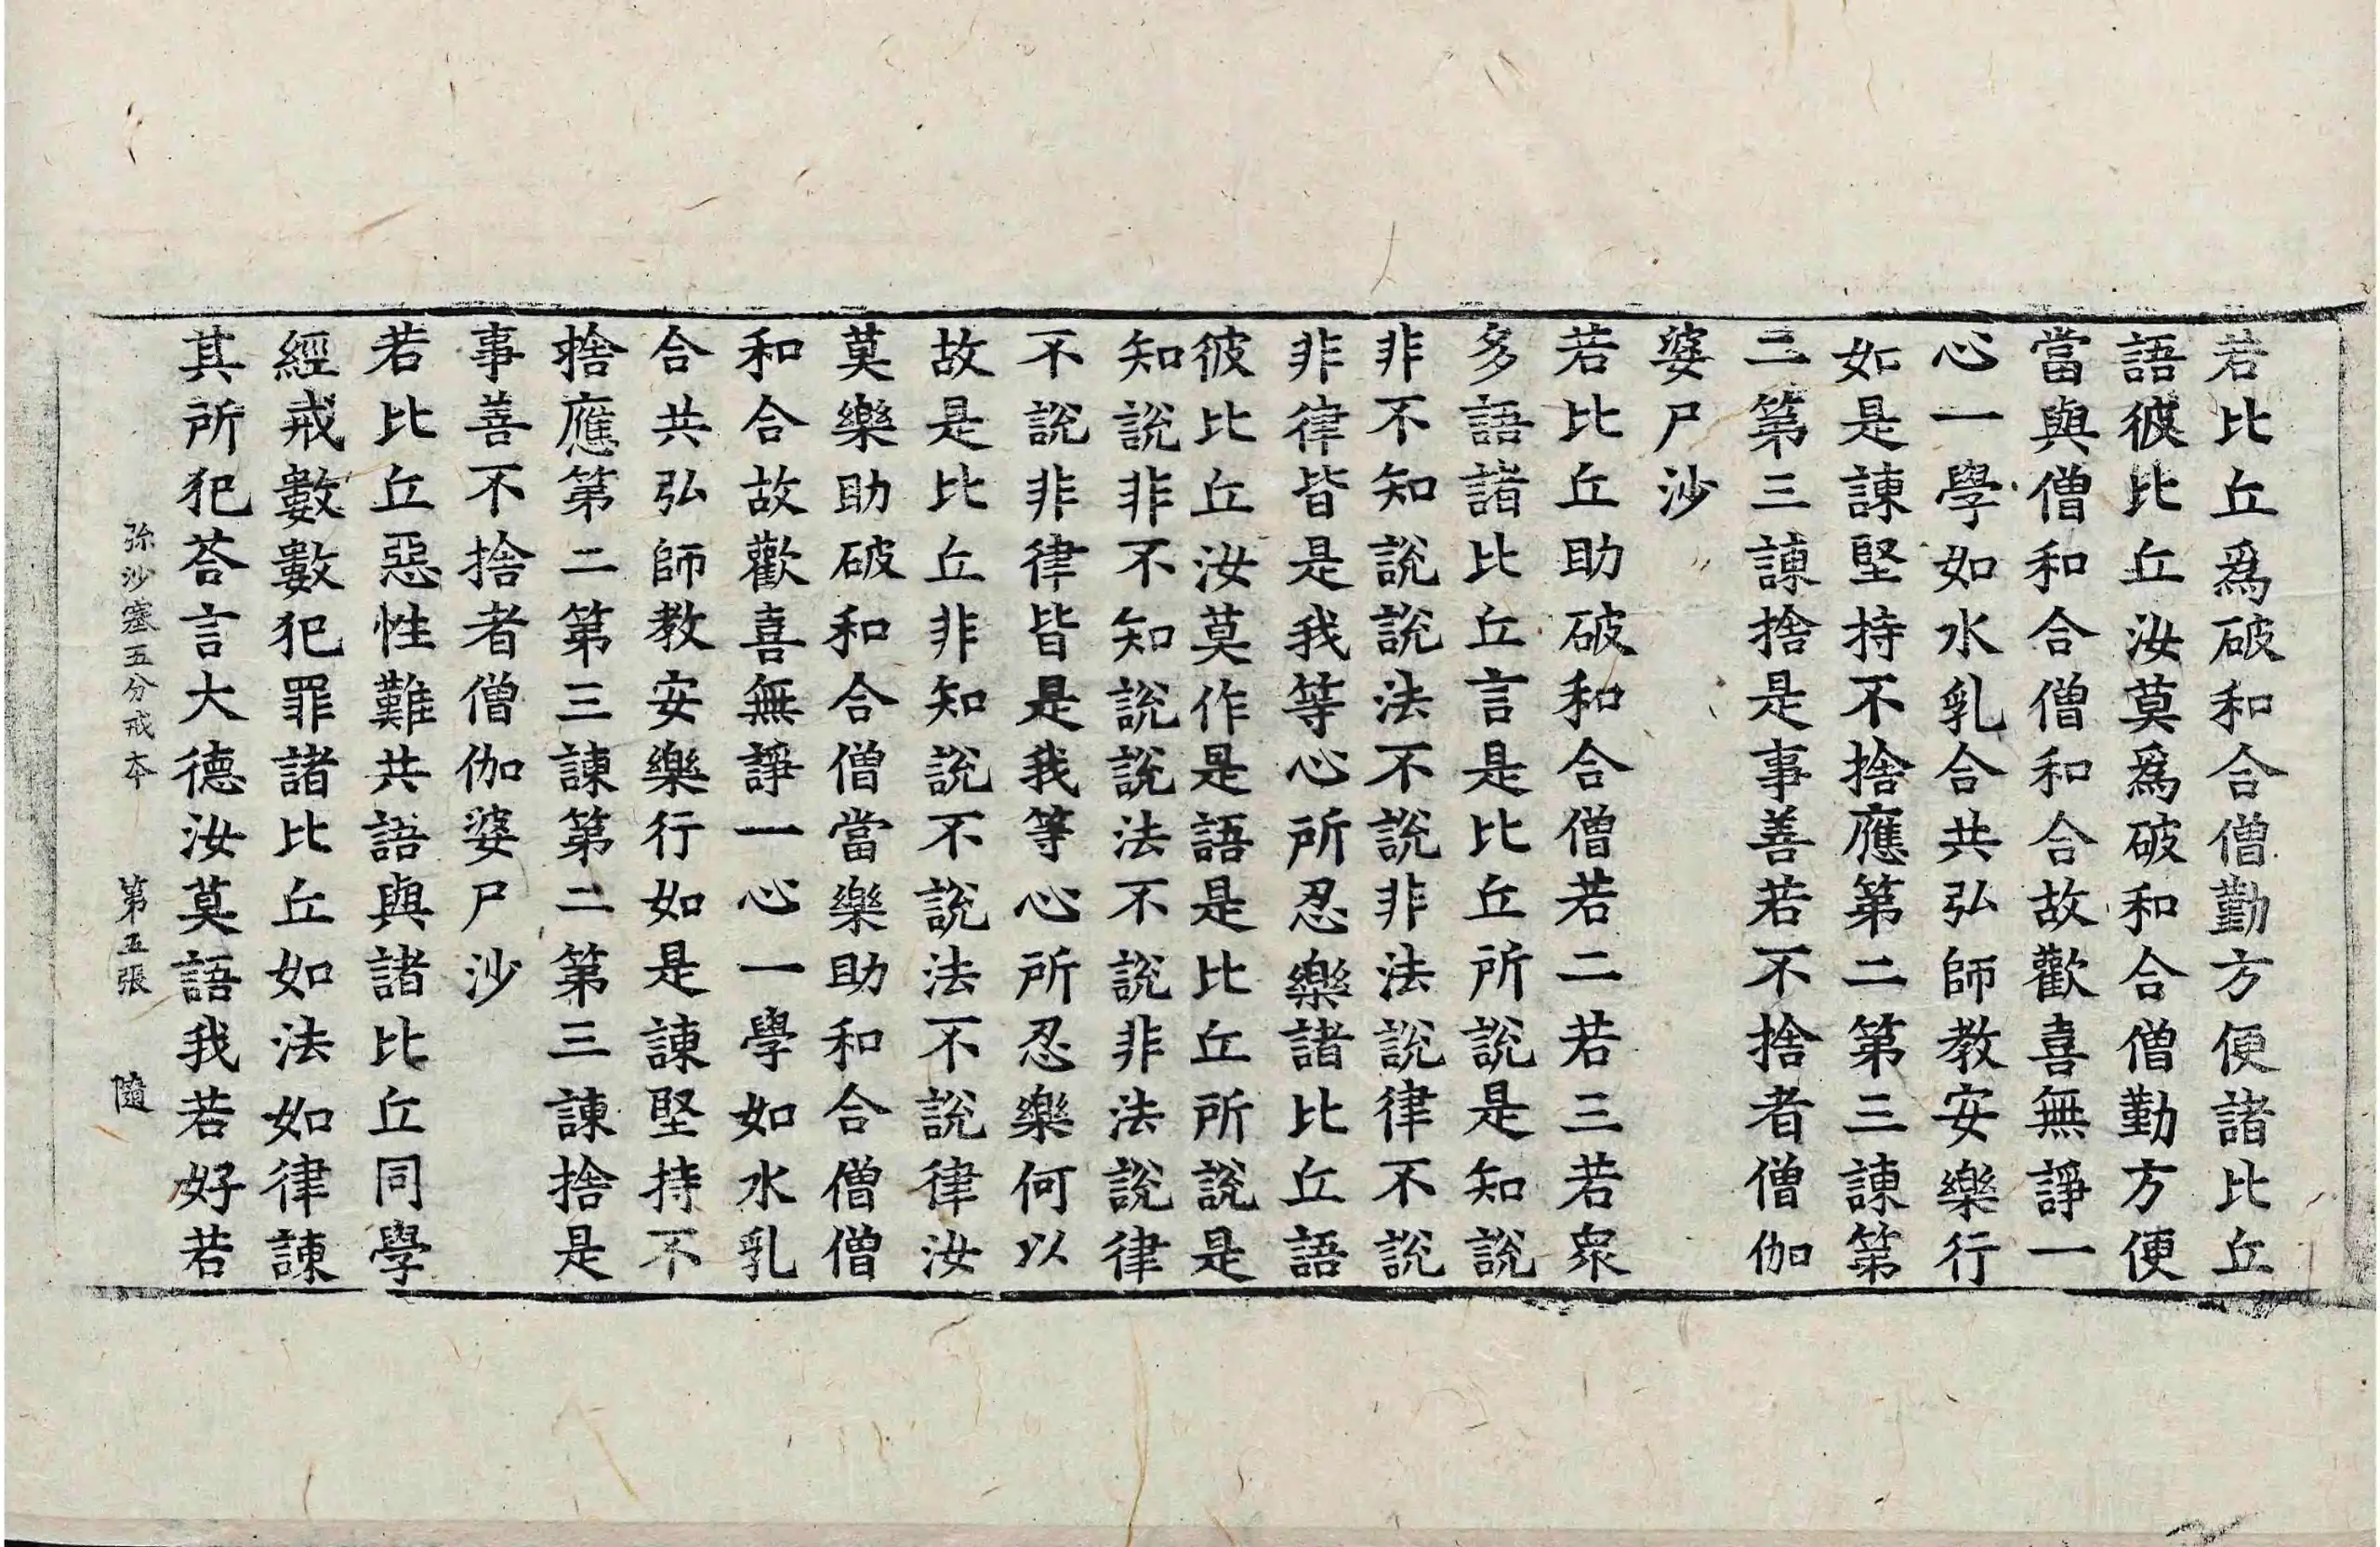 若比丘爲破和合僧勤方便諸比丘
語彼比丘汝莫爲破和合僧勤方便
當與僧和合僧和合故歡喜無諍一
心一學如水乳合共弘師教安樂行
如是諫堅持不捨應第二第三諫第
二第三諫捨是事善若不捨者僧伽
婆尸沙
若比丘助破和合僧若二若三若衆
多語諸比丘言是比丘所說是知說
非不知說說法不說非法說律不說
非律皆是我等心所忍樂諸比丘語
彼比丘汝莫作是語是比丘所說是
知說非不知說說法不說非法說律
不說非律皆是我等心所忍樂何以
故是比丘非知說不說法不說律汝
莫樂助破和合僧當樂助和合僧僧
和合故歡喜無諍一心一學如水乳
合共弘師教安樂行如是諫堅持不
捨應第二第三諫第二第三諫捨是
事善不捨者僧伽婆尸沙
若比丘惡性難共語與諸比丘同學
經戒數數犯罪諸比丘如法如律諫
其所犯荅言大德汝莫語我若好若
弥沙塞五分戒本 第五張 隨